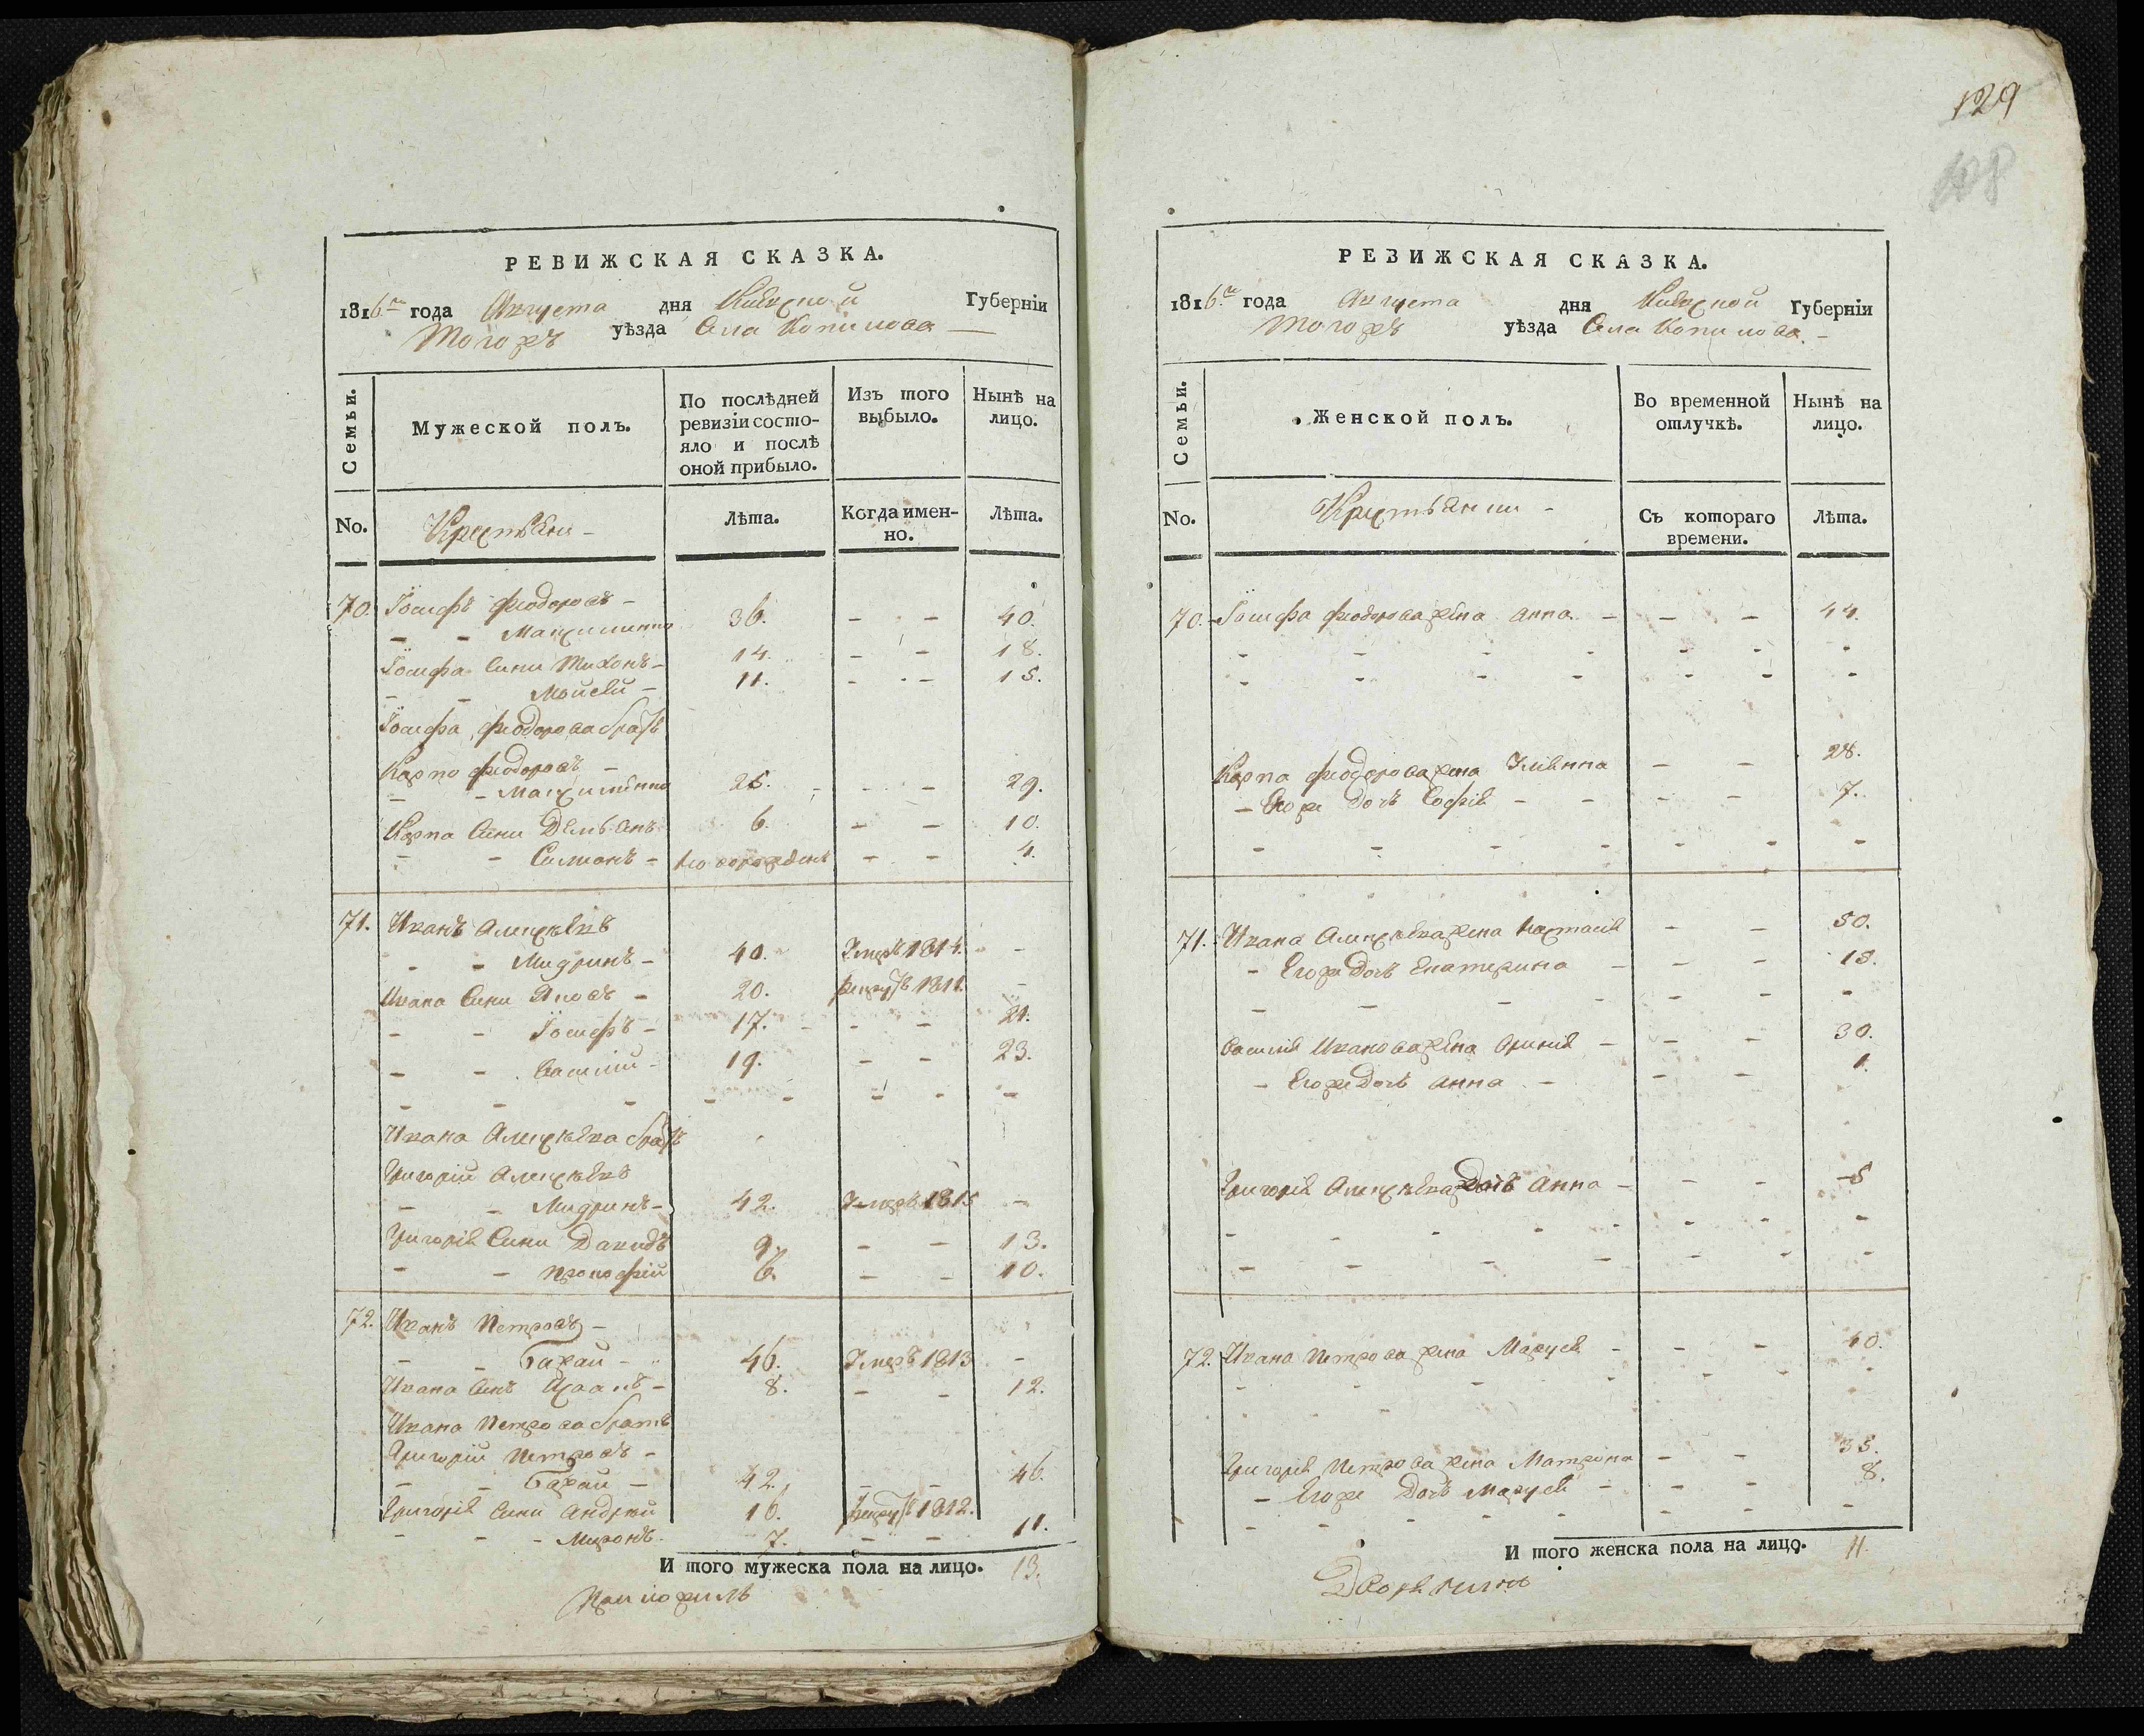 129
РЕВИЖСКАЯ СКАЗКА.
1816.го года Августа дня Киевской Губерніи
уѣзда Села Копилова
Семьи.
Мужеской полъ.
По послѣдней ревизіи состо-
яло и послѣ
оной прибыло.
Изъ того выбыло.
Нынѣ на лицо.
No.
Крестьяни
Лѣта.
Когда имен-
но.
Лѣта.
70. Іосифъ Феодоровъ
- - Максименко 36. - - 40.
Іосифа Сини Тихонъ 14. - - 18.
- - Мойсей 11. - - 15.
Іосифа Феодорова братъ
Карпо Феодоровъ
- - Максименко 25. - - 29.
Карпа Сини Демьянъ 6. - - 10.
- - Симонъ новорожденъ - - 4.
71. Иванъ Алексѣевъ
- - Мидринъ 40. Умеръ 1814. -
Ивана Сини Яковъ 20. рекрутъ 1811. -
- - Іосифъ 17. - - 21.
- - Василій 19. - - 23.
Ивана Алексѣева братъ
Григорій Алексѣевъ
- - Мидринъ 42. Умеръ 1815 -
Григорія Сини Давидъ 9. - - 13.
- - Прокофій 6. - - 10.
72. Иванъ Петровъ
- - 46. Умеръ 1813 -
Ивана Синъ 8. - - 12.
Ивана Петрова братъ
Григорій Петровъ
- - 42. - - 46.
Григорія Сини Андрей 16. рекрутъ 1812.
- - Миронъ 7. - - 11.
И того мужеска пола на лицо. 13.
РЕВИЖСКАЯ СКАЗКА.
1816.го года Августа дня Киевской Губерніи
уѣзда Села Копилова.
Семьи.
Женской полъ.
Во временной отлучкѣ.
Нынѣ на лицо.
No.
Крестьянки
Съ котораго времени.
Лѣта.
70. Іосифа Феодорова жена Анна - - 44.
Карпа Феодорова жена - - 28.
- Егоже дочь Софія - - 7.
71. Ивана Алексѣева жена Настасія - - 50.
- Егоже дочь Екатерина - - 13.
Василія Иванова жена - - 30.
- Егоже дочь Анна - - 1.
Григорія Алексѣева дочь Анна - - 5
72. Ивана Петрова жена - - 40.
Григорія Петрова жена Матрона - - 35.
- Егоже дочь - - 8.
И того женска пола на лицо. 11.